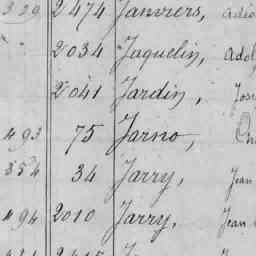 329 2474 Janviers,
2034 Jaquelin, Adol
2041 Jardin, Jose
493 75 Jarno,
354 34 Jarry, Jean
494 2010 Jarry, Jean